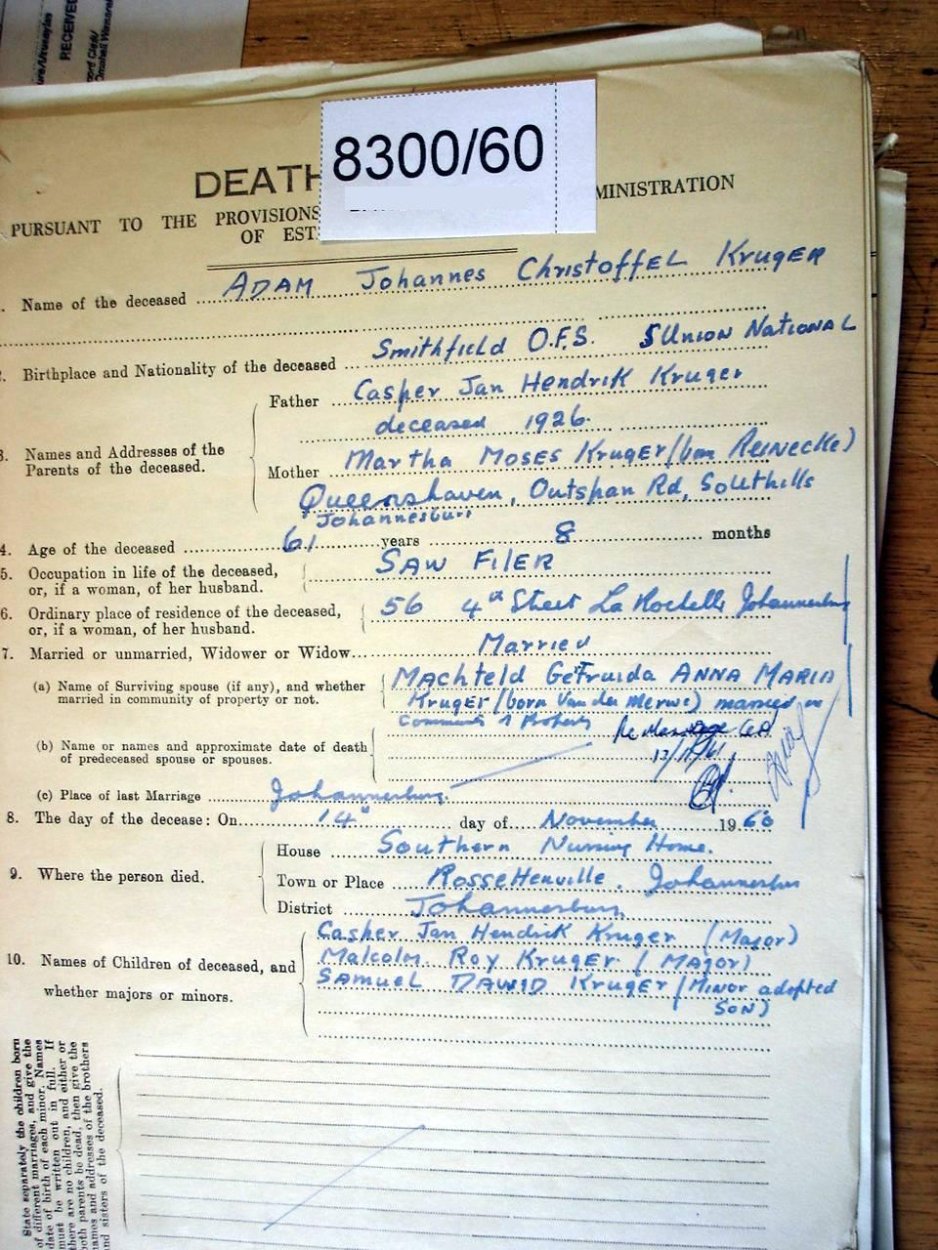 RECEIVED
8300/60
DEATH
MINISTRATION
PURSUANT TO THE PROVISIONS
OF EST.
Name of the deceased ADAM Johannes Christoffel Kruger
2. Birthplace and Nationality of the deceased Smithfield O.F.S. S Union National
3. Names and Addresses of the Parents of the deceased.
Father Casper Jan Hendrik Kruger
deceased 1926.
Mother Martha Moses Kruger (born Reinecke)
Queenshaven, Outspan Rd, Southills
Johannesburg
4. Age of the deceased 61 years 8 months
5. Occupation in life of the deceased, SAW FILER
or, if a woman, of her husband.
6. Ordinary place of residence of the deceased, 56 4th Street La Rochelle Johannesburg
or, if a woman, of her husband.
7. Married or unmarried, Widower or Widow... Married
(a) Name of Surviving spouse (if any), and whether Machteld Getruida ANNA MARIA
married in community of property or not. Kruger (born Van der Merwe) married in
Community of Property
(b) Name or names and approximate date of death
of predeceased spouse or spouses.
(c) Place of last Marriage Johannesburg
8. The day of the decease: On 14th day of November 1960
9. Where the person died.
House Southern Nursing Home.
Town or Place Rossettenville. Johannesburg
District Johannesburg
10. Names of Children of deceased, and
whether majors or minors.
Casper Jan Hendrick Kruger (Major)
Malcolm Roy Kruger (Major)
Samuel Dawid Kruger (Minor adopted
Son)
State separately the children born
of different marriages, and give the
date of birth of each minor. Names
must be written out in full. If
there are no children, and either or
both parents be dead, then give the
names and addresses of the brothers
and sisters of the deceased.